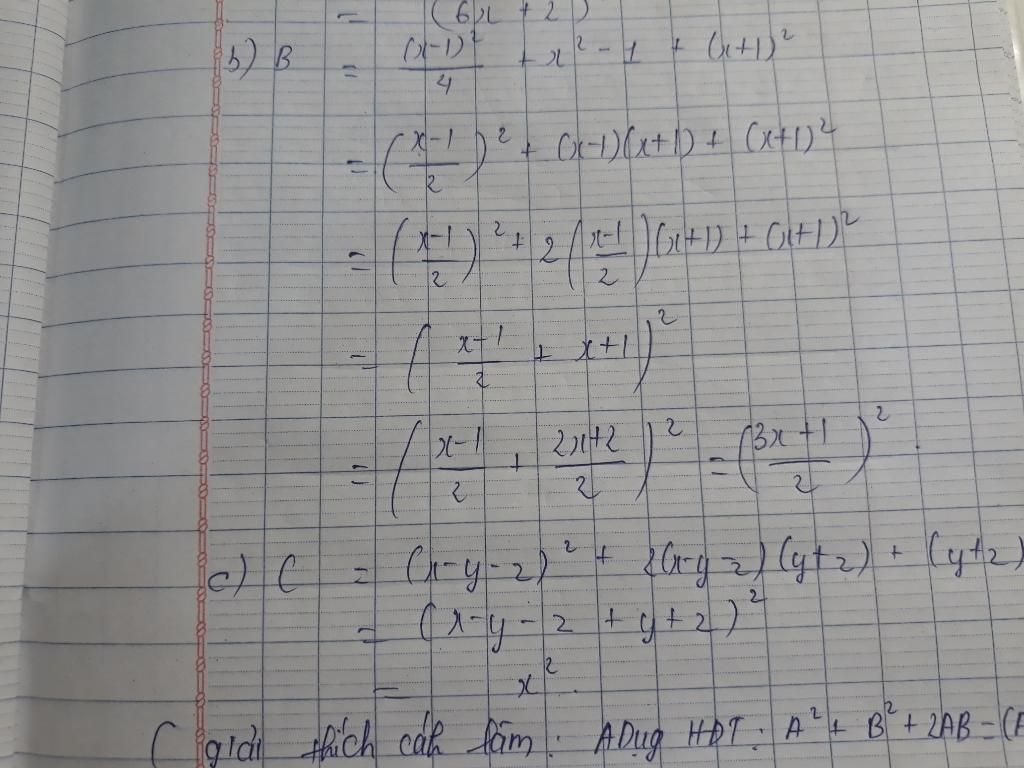 = (6x + 2)
b) B = (x-1)²/4 + x² - 1 + (x+1)²
= (x-1/2)² + (x-1)(x+1) + (x+1)²
= (x-1/2)² + 2(x-1/2)(x+1) + (x+1)²
= (x-1/2 + x+1)²
= (x-1/2 + 2x+2/2)² = (3x+1/2)².
c) C = (x-y-z)² + 2(x-y-z)(y+z) + (y+z)
= (x-y-z+y+z)²
= x².
( giải thích cách làm: ADụg HĐT: A² + B² + 2AB = (